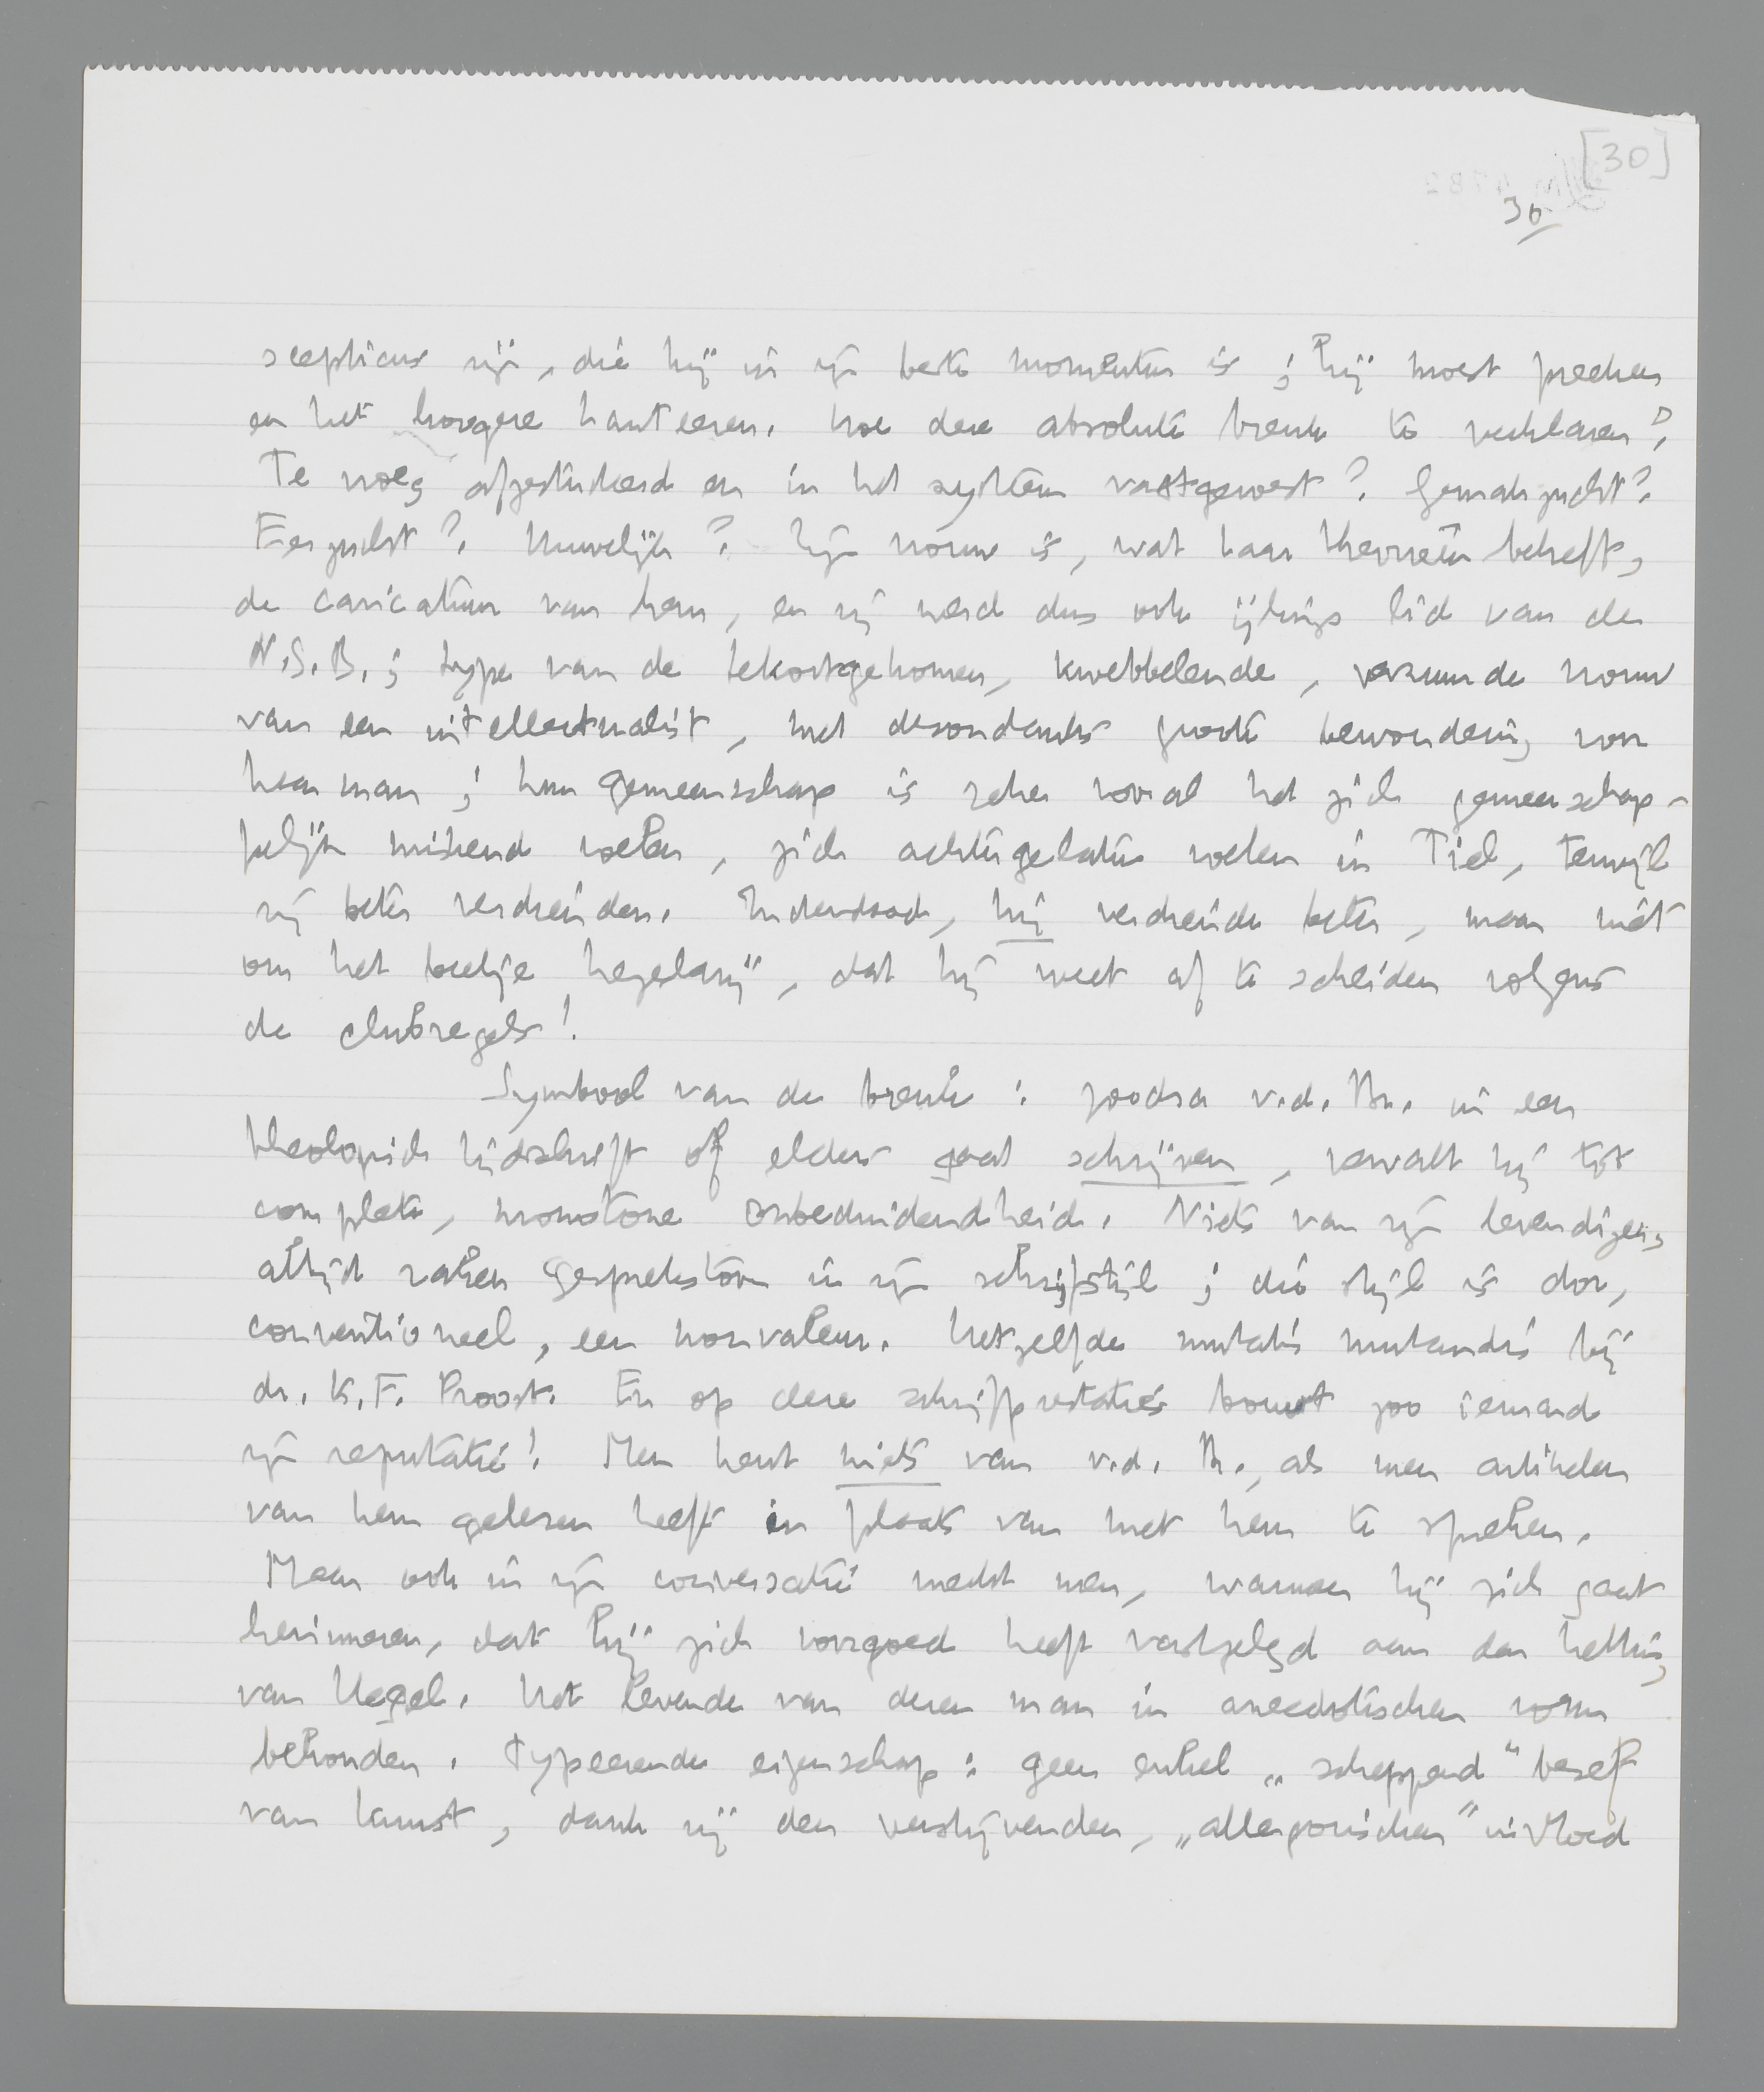 [30]
30
scepticus zijn, die hij in zijn beste momenten is; hij moest preeken
en het hoogere hanteeren. Hoe deze absolute breuk te verklaren?
Te vroeg afgestudeerd en in het systeem vastgeroest? Gemakzucht?
Eerzucht? Huwelijk? Zijn vrouw is, wat haar theorieën betreft,
de caricatuur van hem, en zij werd dus ook ijlings lid van de
N.S.B.; type van de tekortgekomen, kwebbelende, verzuurde vrouw
van een intellectualist, met desondanks groote bewondering voor
haar man; hun gemeenschap is zeker vooral het zich gemeenschap-
pelijk miskend voelen, zich achtergelaten voelen in Tiel, terwijl
zij beter verdienden. Inderdaad, hij verdiende beter, maar niet
om het beetje hegelarij, dat hij weet af te scheiden volgens
de clubregels!
Symbool van de breuk: zoodra v.d. Br. in een
theologisch tijdschrift of elders gaat schrijven, vervalt hij tot
complete, monotone onbeduidendheid. Niets van zijn levendigen,
altijd raken gesprekstoon in zijn schrijfstijl; die stijl is dor,
conventioneel, een nonvaleur. Hetzelfde mutatis mutandis bij
dr. K.F. Proost. En op deze schrijfprestaties bouwt zoo iemand
zijn reputatie! Men kent niets van v.d. Br., als men artikelen
van hem gelezen heeft in plaats van met hem te spreken.
Maar ook in zijn conversatie merkt men, wanneer hij zich gaat
herinneren, dat hij zich voorgoed heeft vastgelegd aan den ketting
van Hegel. Het levende van dezen man in anecdotischen vorm
behouden. Typeerende eigenschap: geen enkel „scheppend" besef
van kunst, dank zij den verstijvenden, „allegorischen" invloed